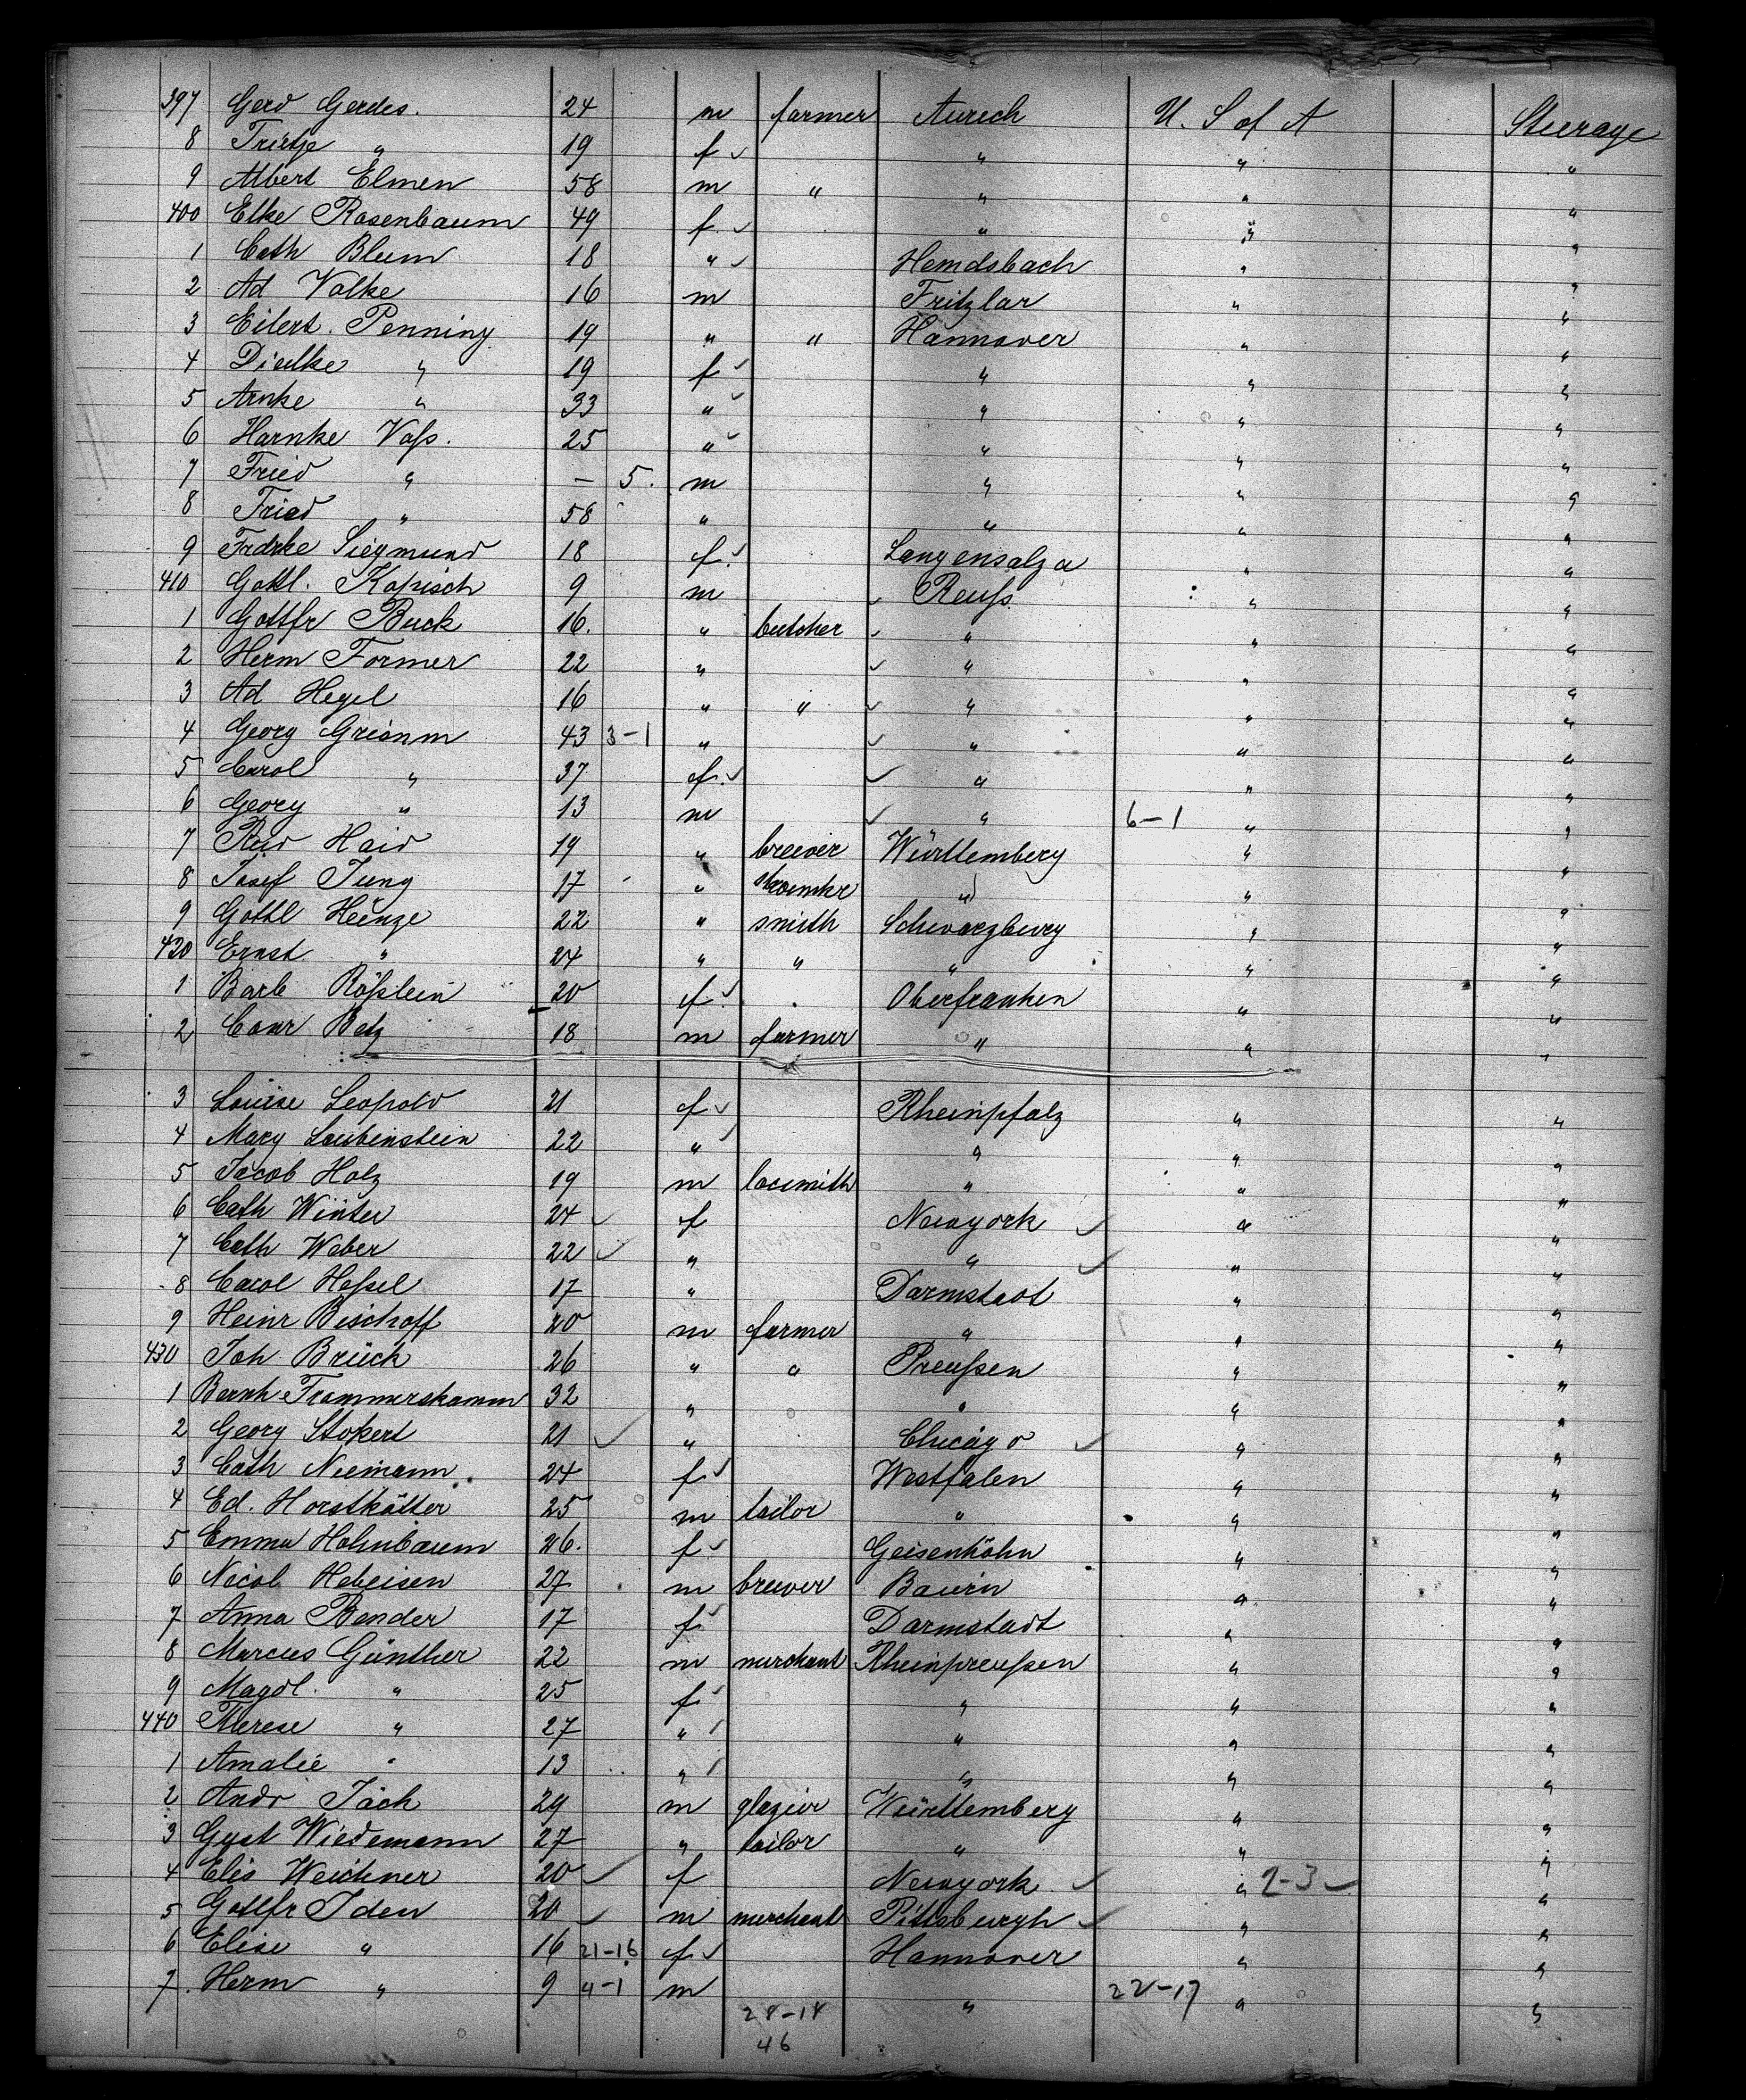 397 Gerd Gerdes. 24 m farmer Aurich U. S of A Steerage
8 Trietje " 19 f ✓ " " "
9 Albert Elmen 58 m " " " "
400 Elke Rosenbaum 49 f. ✓ " " "
1 Cath Blum 18 " ✓ Hemdsbach " "
2 Ad Volke 16 m Fritzlar " "
3 Eilert Penning 19 " " Hannover " "
4 Diedke " 19 f ✓ " " "
5 Arnke " 33 " ✓ " " "
6 Harnke Voſs. 25 " ✓ " " "
7 Fried " – 5. m " " "
8 Fried " 58 " " " "
9 Frdrke Siegmund 18 f. ✓ Langensalza " "
410 Gottl. Kopisch 9 m ✓ Reuſs " "
1 Gottfr Buck 16. " butcher ✓ " " "
2 Herm Former 22 " ✓ " " "
3 Ad Hegel 16 " " ✓ " " "
4 Georg Grimm 43 3-1 " ✓ " " "
5 Carol " 37 f. ✓ ✓ " " "
6 Georg " 13 m ✓ " 6-1 " "
7 Rud Haid 19 " brewer Württemberg " "
8 Josef Jung 17 " " " "
9 Gottl Heinze 22 " smith Schwarzburg " "
420 Ernst " 24 " " " " "
1 Barb Röſslein 20 f. ✓ Oberfranken " "
2 Conr Betz 18 m farmer " " "
3 Louise Leopold 21 f ✓ Rheinpfalz " "
4 Mary Leubenstein 22 " ✓ " " "
5 Jacob Holz 19 m locsmith " " "
6 Cath Winter 24 ✓ f Newyork ✓ " "
7 Cath Weber 22 ✓ " " ✓ " "
8 Carol Heſsel 17 " Darmstadt " "
9 Heinr Bischoff 20 m farmer " " "
430 Joh Brück 26 " " Preuſsen " "
1 Bernh Trommerskamm 32 " " " "
2 Georg Stokert 21 ✓ " Chicago ✓ " "
3 Cath Niemann 24 f ✓ Westfalen " "
4 Ed. Horstkötter 25 m tailor " " "
5 Emma Hohnbaum 26. f ✓ Geisenhöhn " "
6 Nicol Hebeisen 27 m brewer Baiern " "
7 Anna Bender 17 f ✓ Darmstadt " "
8 Marcus Günther 22 m merchant Rheinpreuſsen " "
9 Magdl. " 25 f ✓ " " "
440 Therese " 27 " ✓ " " "
1 Amalie " 13 " ✓ " " "
2 Andr Jäch 29 m glazier Württemberg " "
3 Gust Wiedemann 27 " tailor " " "
4 Elis Weichner 20 ✓ f Newyork ✓ " 2-3 ✓ "
5 Gottfr Iden 20 ✓ m merchant Pittsburgh ✓ " "
6 Elise " 16 21-16 f ✓ Hannover " "
7. Herm " 9 4-1 m " 22-17 " "
28-18
46